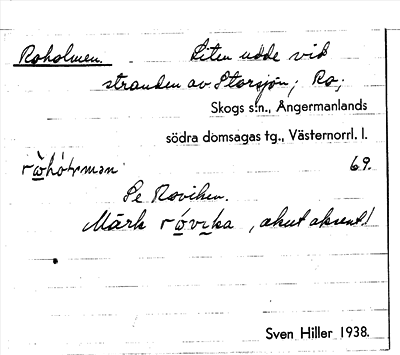 Roholmen. Liten udde vid
stranden av Storsjön; Ro;
Skogs s:n., Ångermanlands
södra domsagas tg., Västernorrl. l.
69.
Se Roviken.
Märk róvika, akut aksent!
Sven Hiller 1938.